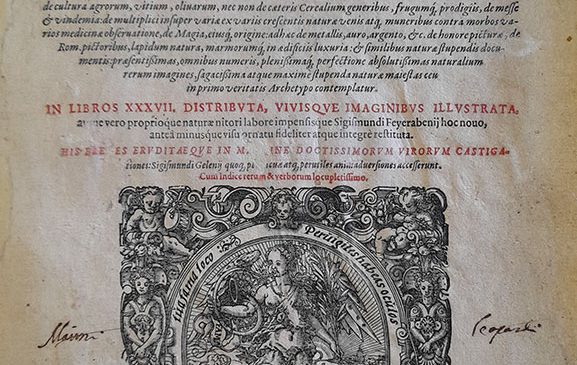 de cultura agrorum, vitium, olivarum, nec non de cæteris Cerealium generibus, frugumq́, prodigijs, de messe
& vindemia: de multiplici insuper varie ex variis crescentis naturæ venis atq, muneribus contrà morbos va-
rios medicinæ observatione, de Magia, eiusq́, origine: ad hæc de metallis, auro, argento, &c. de honore picturæ, de
Rom. pictoribus, lapidum natura, marmorumq́, in ædificiis luxuria: & similibus naturæ stupendis docu-
mentis: præsentissimas, omnibus numeris, plenissimaq́, perfectione absolutissimas naturalium
rerum imagines, sagacissima atque maximè stupenda naturæ maiestas ceu
in primo veritatis Archetypo contemplatur.
IN LIBROS XXXVII. DISTRIBVTA, VIVISQVE IMAGINIBVS ILLVSTRATA,
vero proprioque naturæ nitori labore impensisque Sigismundi Feyerabenij hoc nouo,
anteà minusque visu ornatu fideliter atque integrè restituta.
ERVDITAEQVE IN DOCTISSIMORVM VIRORVM CASTIGA-
tiones: Sigismundi Gelenij quoq, atq, perutiles animaduersiones accesserunt.
Cum Indice rerum & verborum locupletissimo.
Peruigiles habeas oculos